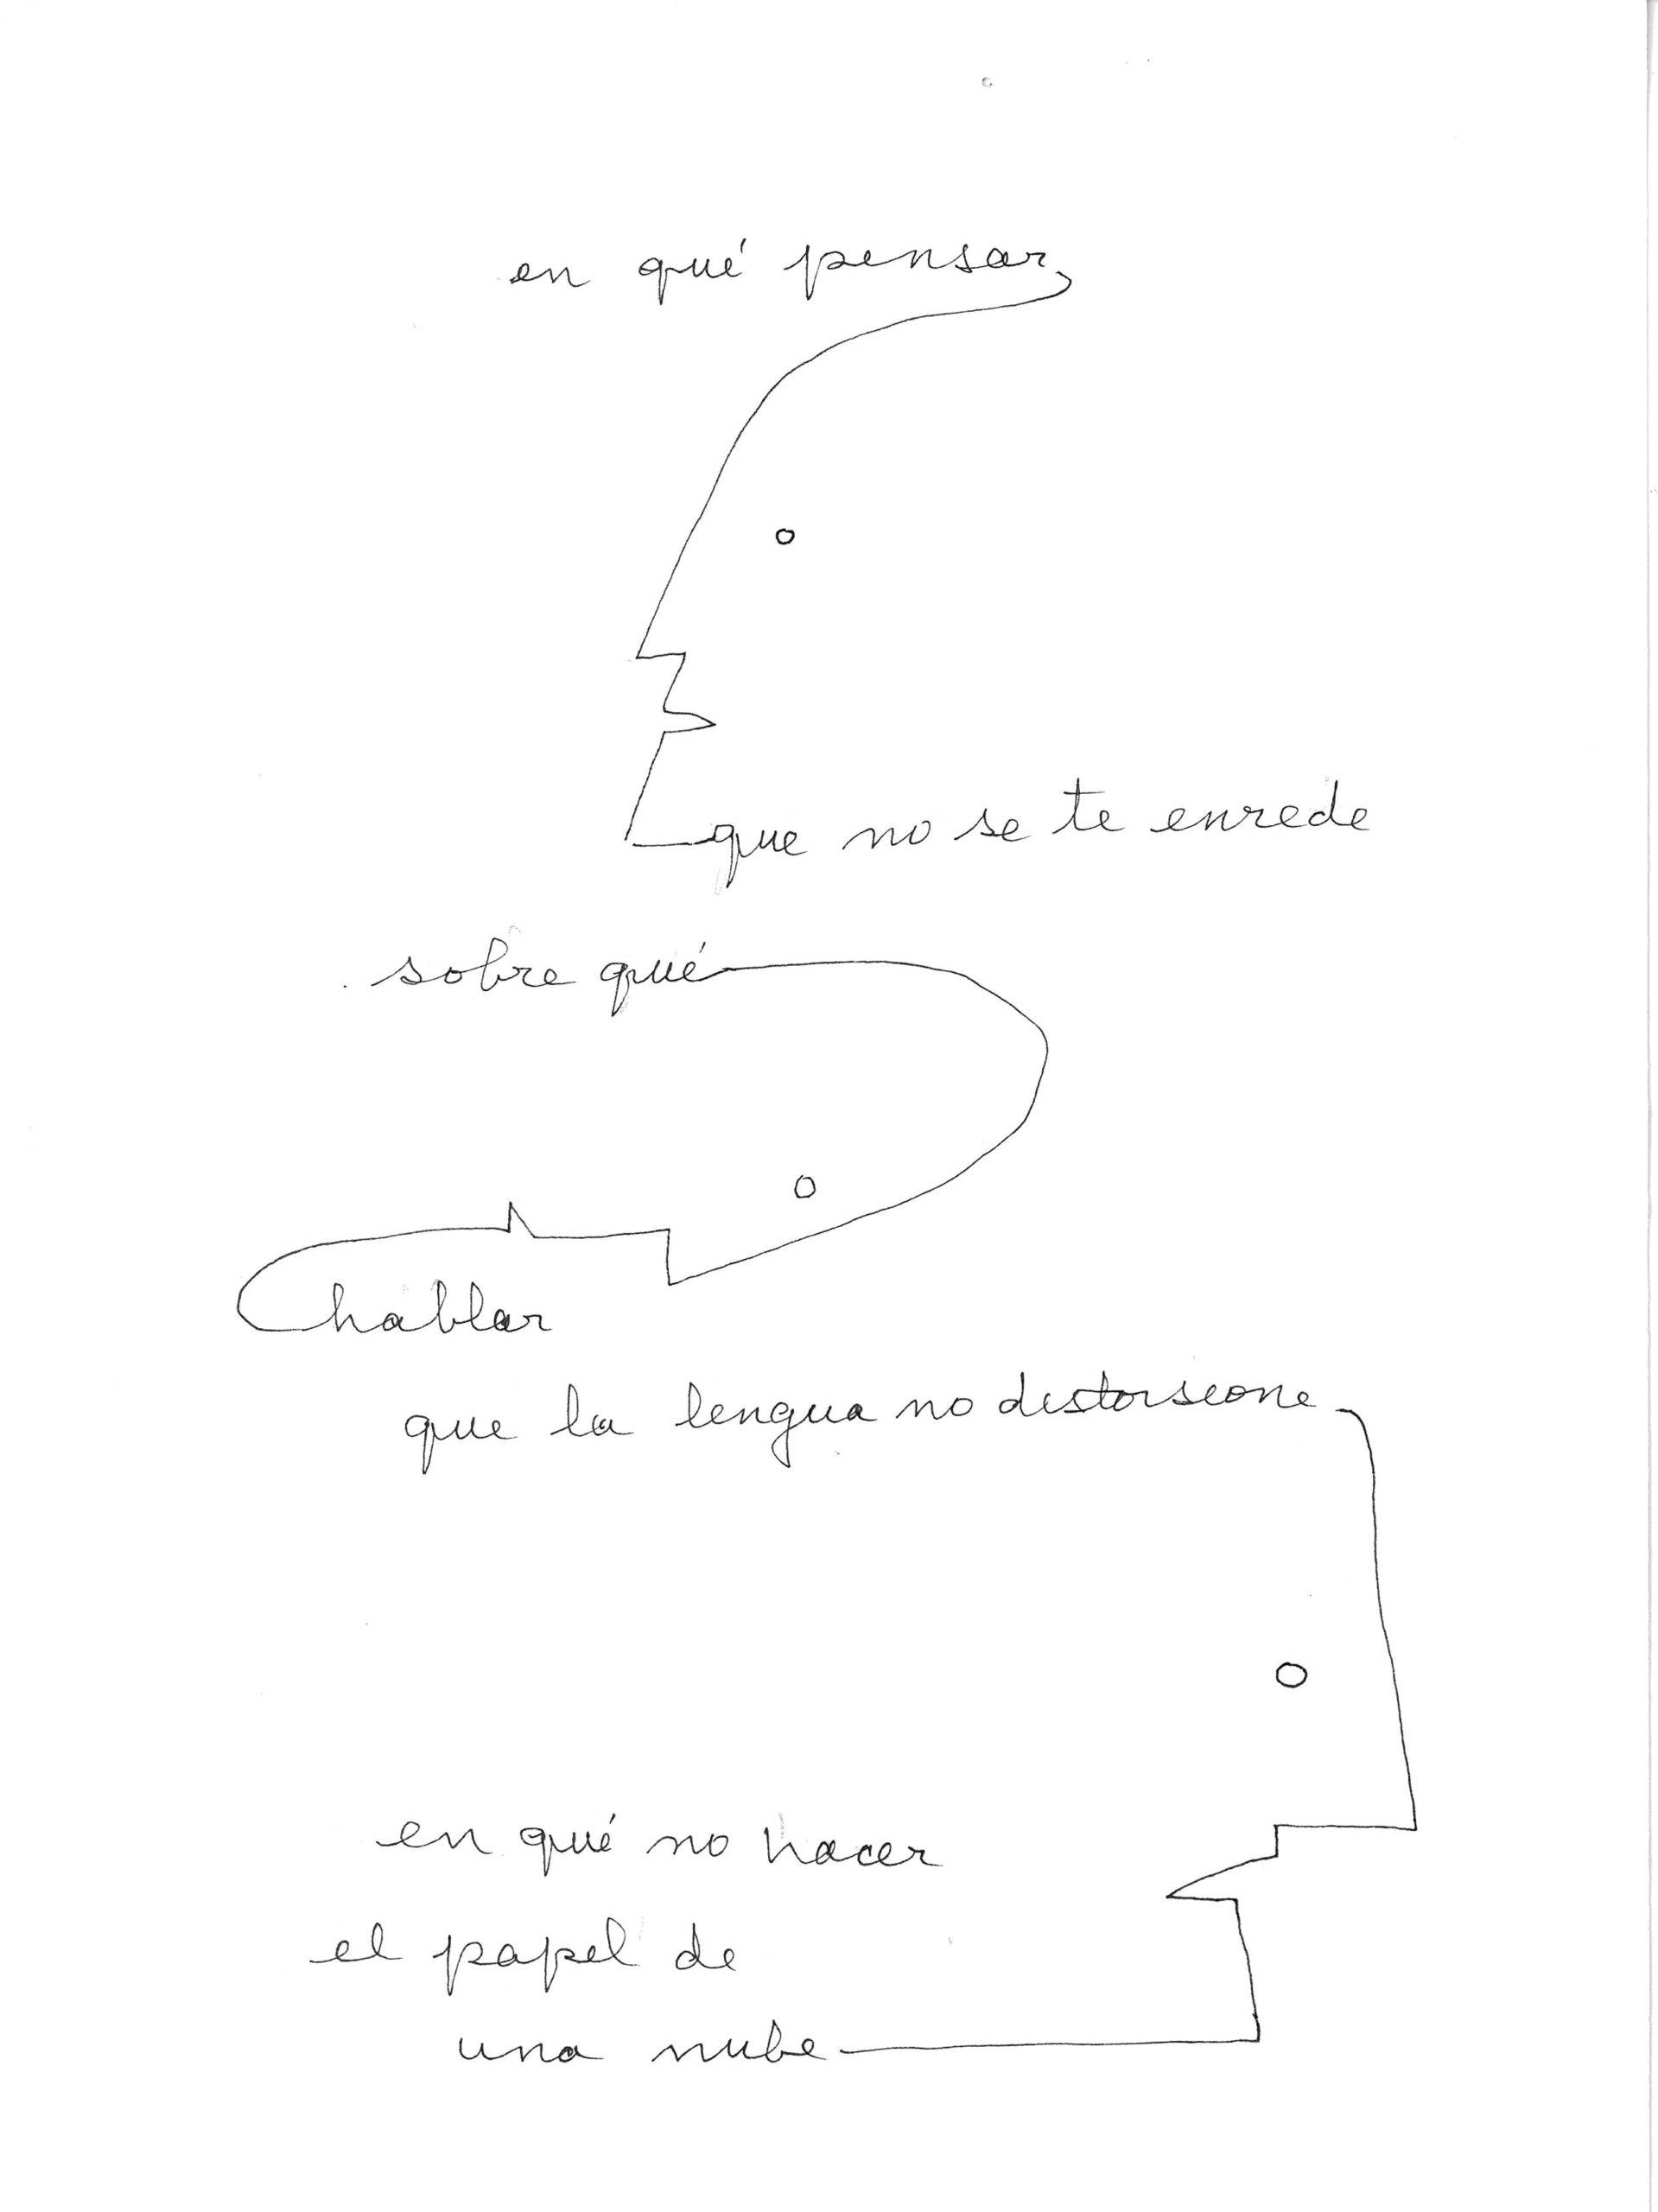 en qué pensar
que no se te enrede
sobre qué
hablar
que la lengua no distorsione
en qué no hacer
el papel de
una nube